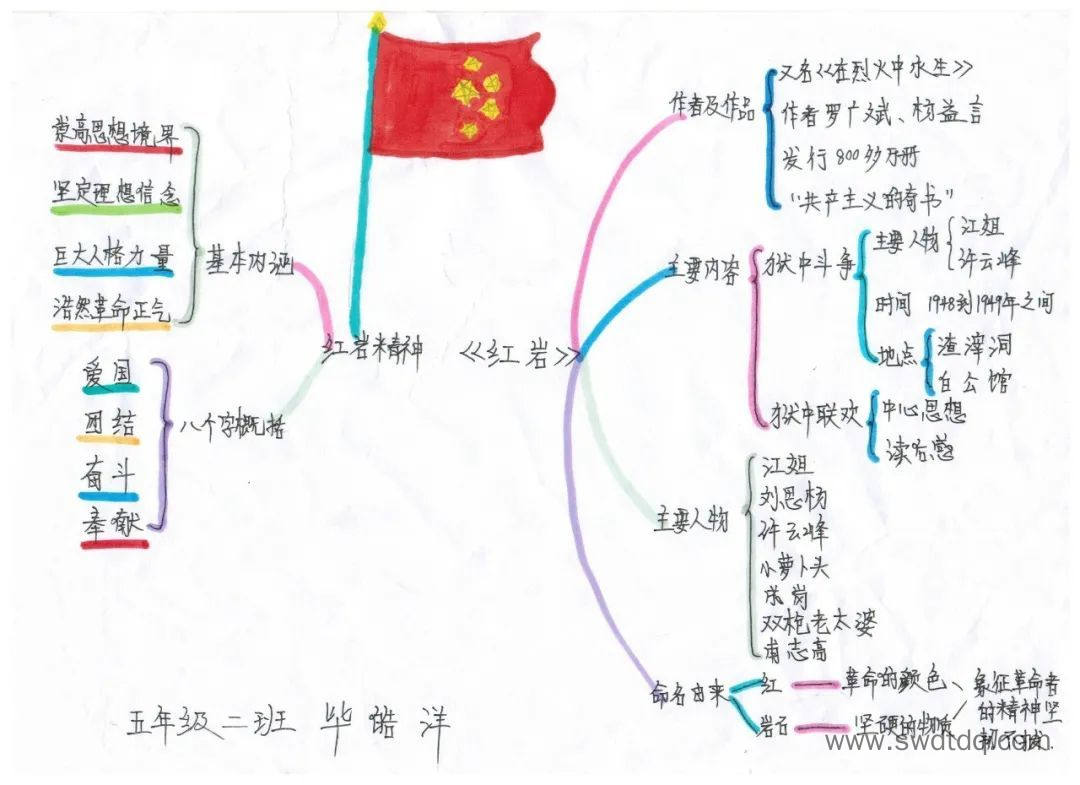 崇高思想境界
坚定理想信念
巨大人格力量
浩然革命正气
基本内涵
爱国
团结
奋斗
奉献
八个字概括
红岩精神
《红岩》
作者及作品
又名《在烈火中永生》
作者罗广斌、杨益言
发行800多万册
“共产主义的奇书”
主要内容
狱中斗争
主要人物
江姐
许云峰
时间 1948到1949年之间
地点
渣滓洞
白公馆
狱中联欢
中心思想
读后感
主要人物
江姐
刘思杨
许云峰
小萝卜头
成岗
双枪老太婆
甫志高
命名由来
红
革命的颜色
岩石
坚硬的物质
象征革命者
的精神坚
韧不拔
五年级二班 毕皓洋
www.swdtdq.com